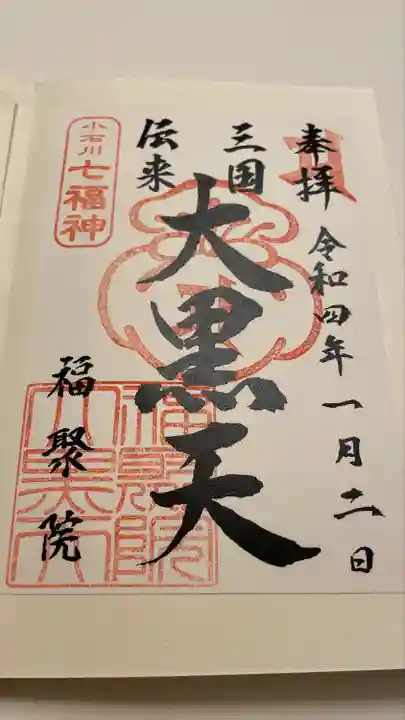 奉拝
令和四年一月二日
三国
伝来
大黒天
小石川
七福神
福聚院